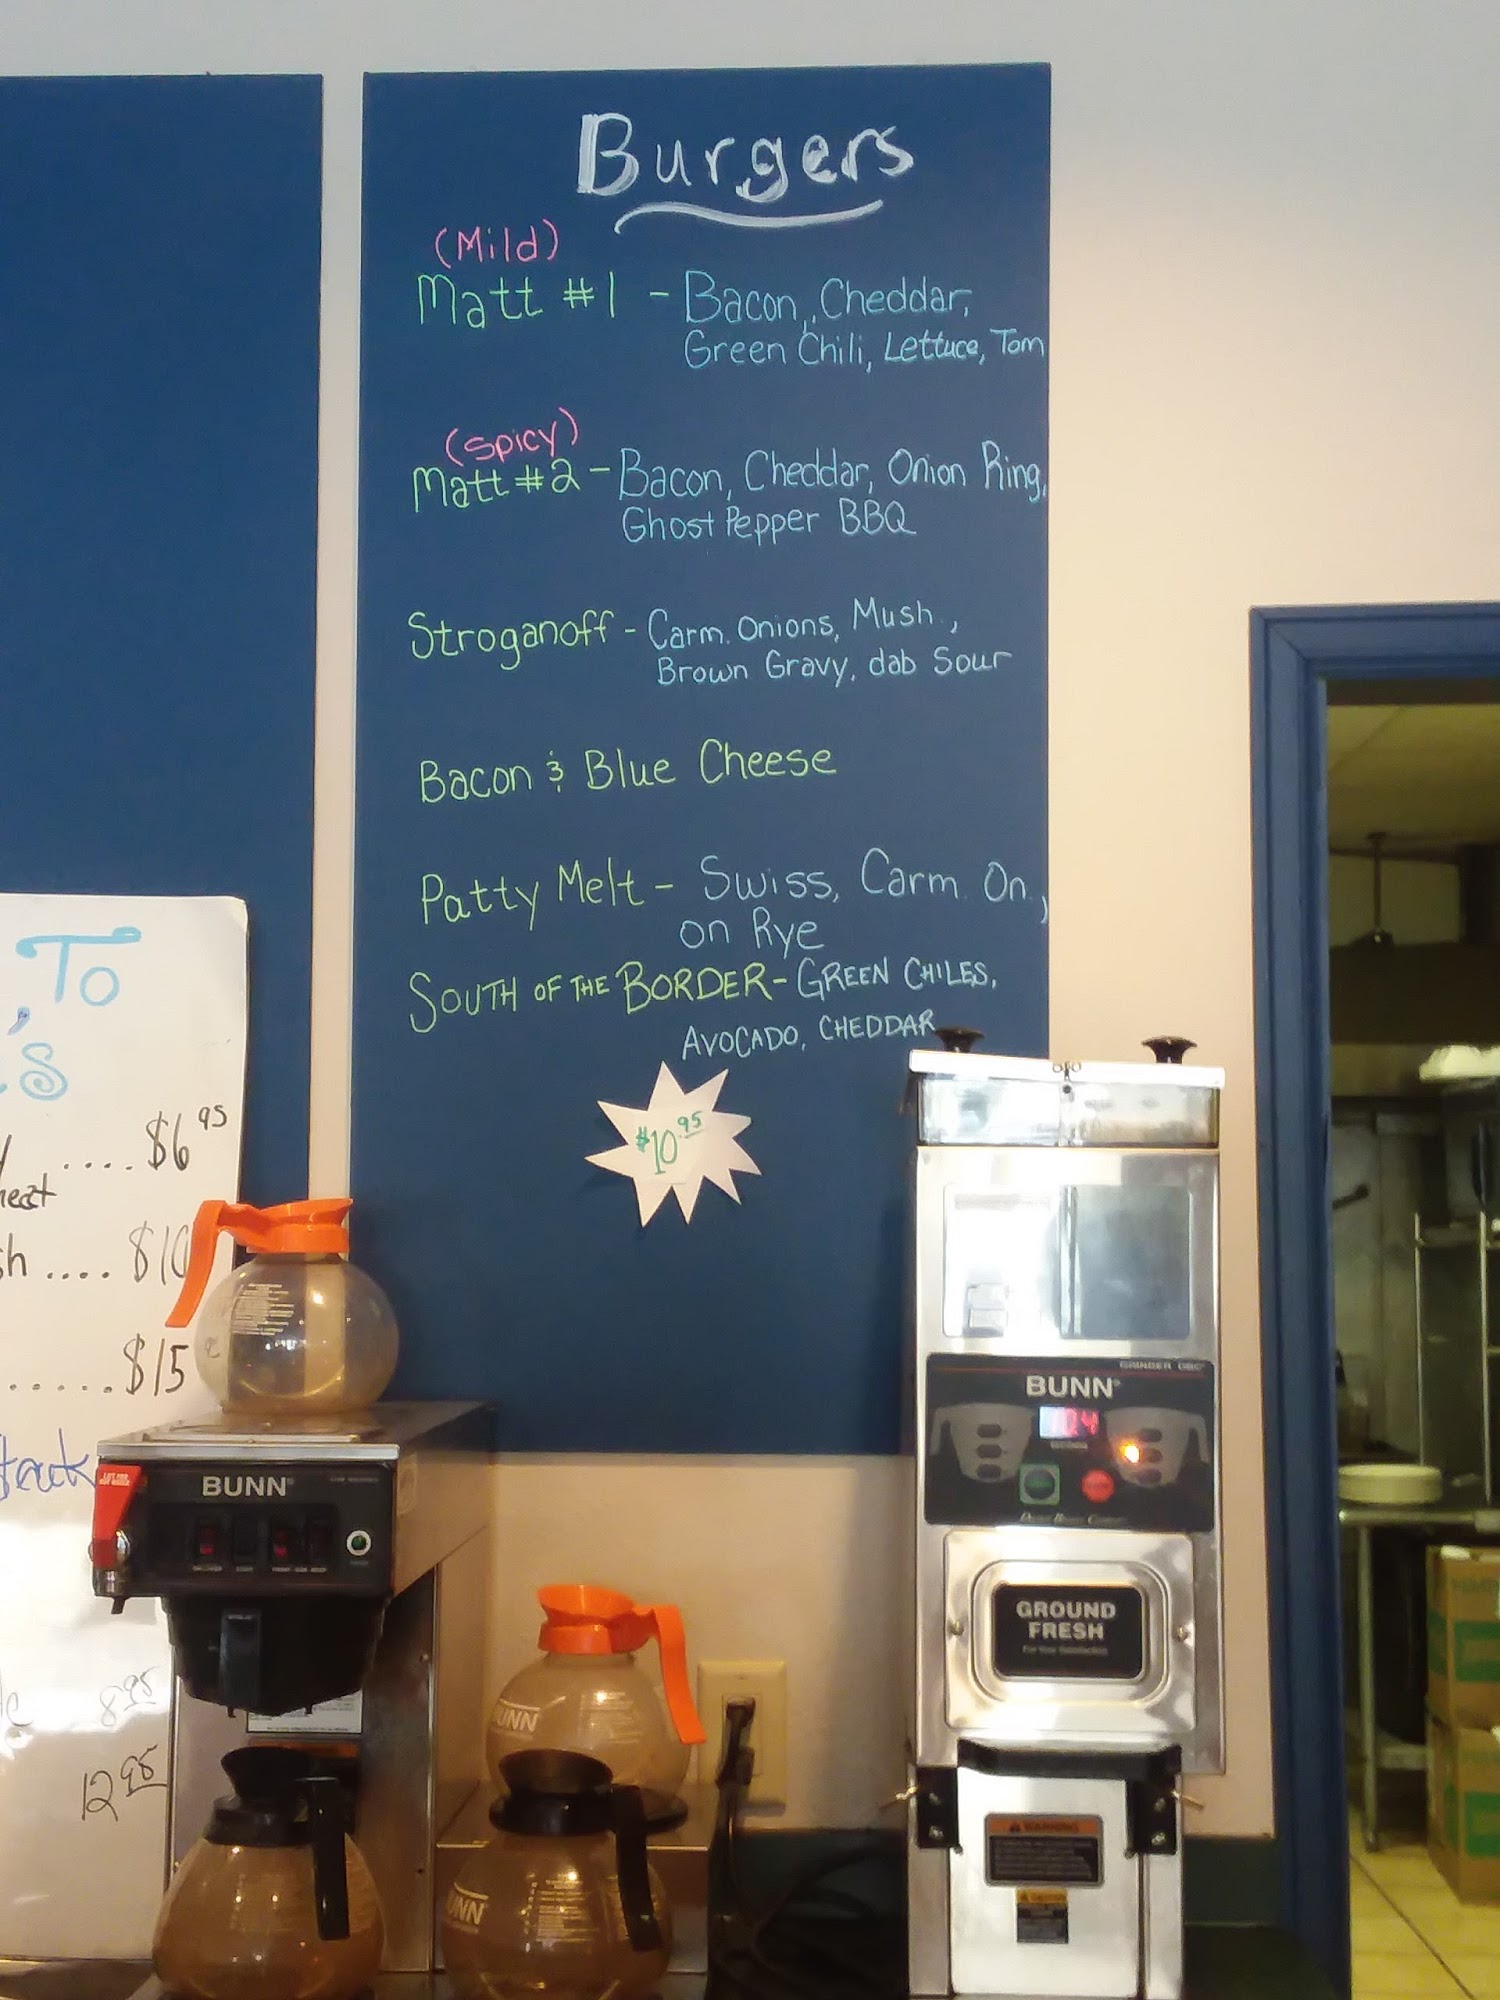 Burgers
(Mild)
Matt #1 - Bacon, Cheddar,
Green Chili, Lettuce, Tom
(Spicy)
Matt #2 - Bacon, Cheddar, Onion Ring,
Ghost Pepper BBQ
Stroganoff - Carm. Onions, Mush.,
Brown Gravy, dab Sour
Bacon & Blue Cheese
Patty Melt - Swiss, Carm. On.,
on Rye
SOUTH OF THE BORDER - GREEN CHILES,
AVOCADO, CHEDDAR
$10.95
, To
s
.... $6 95
.... $10
...... $15
8.95
12 95
BUNN
BUNN
BUNN
GRINDER
BUNN
GROUND
FRESH
For Your Satisfaction
WARNING